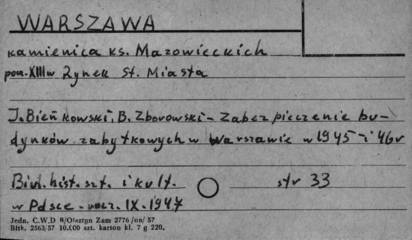 WARSZAWA
kamienica ks. Mazowieckich
pocz. XIII w Rynek St. Miasta
J. Bieńkowski, B. Zborowski - Zabezpieczenie bu-
dynków zabytkowych w Warszawie w 1945 i 46 r
Biul. hist. szt. i kult. str 33
w Polsce - rocz. IX. 1947
Jedn. C.W.D Olsztyn Zam 2776/on/57
Bltk. 2563/57 10.000 szt. karton kl. 7 g 220.